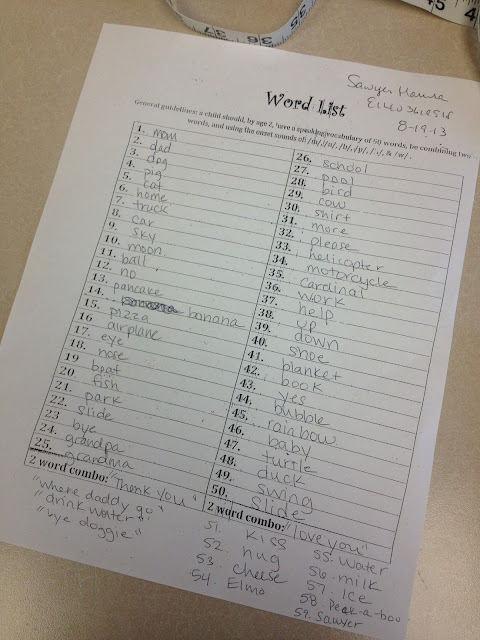 Sawyer
8-19-13
Word List
General guidelines: a child should, by age 2, have a speaking vocabulary of 50 words, be combining two
words, and using the onset sounds of: /h/, /n/, /b/, /p/, & /w/.
1. mom
2. dad
3. dog
4. pig
5. cat
6. home
7. truck
8. car
9. sky
10. moon
11. ball
12. no
13. pancake
14. banana
15. pizza
16 airplane
17. eye
18. nose
19 boat
20 fish
21. park
22. slide
23 bye
24. grandpa
25. grandma
2 word combo: "Thank you"
"where daddy go"
"drink water"
"bye doggie"
26. school
27. pool
28. bird
29. cow
30. shirt
31. more
32. please
33. helicopter
34. motorcycle
35. cardinal
36. work
37. help
38. up
39. down
40. shoe
41. blanket
42. book
43. yes
44. bubble
45. rainbow
46. baby
47. turtle
48. duck
49. swing
50. slide
2 word combo: "love you"
51. Kiss
52. hug
53. cheese
54. Elmo
55. water
56. milk
57. Ice
58. Peek-a-boo
59. Sawyer